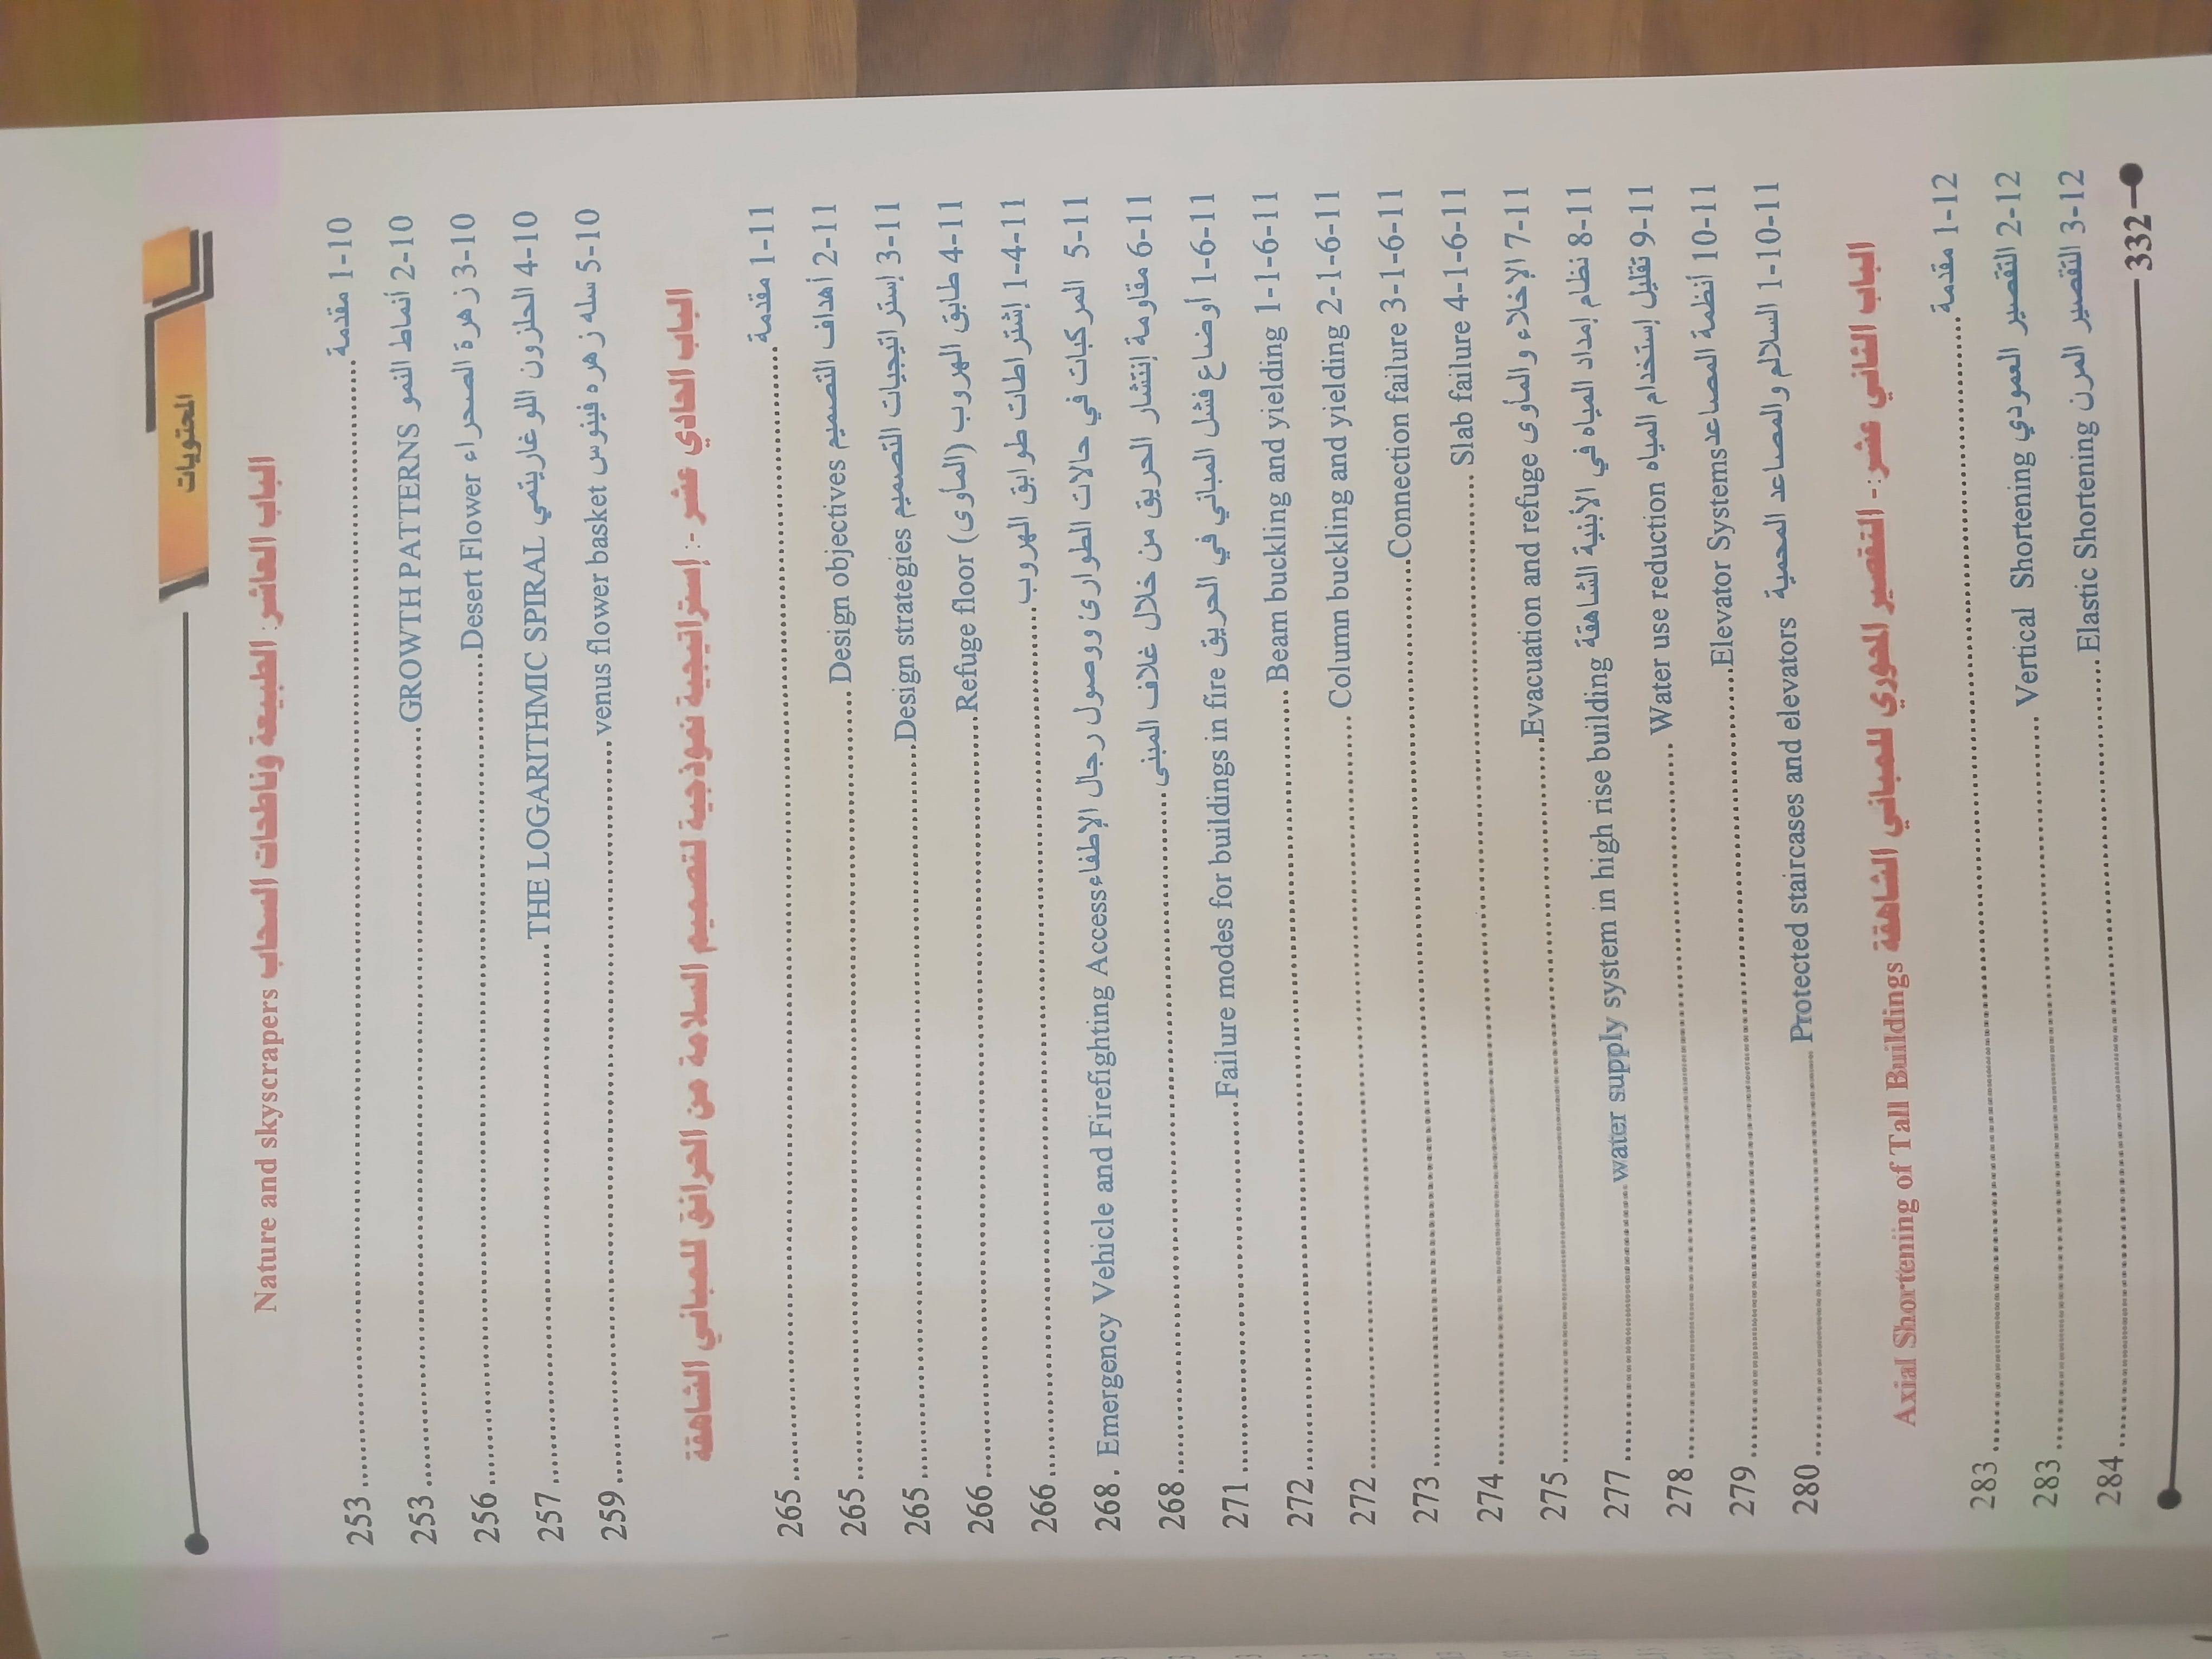 المحتويات
الباب العاشر: الطبيعة وناطحات السحاب Nature and skyscrapers
1-10 مقدمة ........ 253
2-10 أنماط النمو GROWTH PATTERNS ........ 253
3-10 زهرة الصحراء Desert Flower ........ 256
4-10 الحلزون اللوغاريتمي THE LOGARITHMIC SPIRAL ........ 257
5-10 سله زهره فينوس venus flower basket ........ 259
الباب الحادي عشر :- إستراتيجية نموذجية لتصميم السلامة من الحرائق للمباني الشاهقة
1-11 مقدمة ........ 265
2-11 أهداف التصميم Design objectives ........ 265
3-11 إستراتيجيات التصميم Design strategies ........ 265
4-11 طابق الهروب (المأوى) Refuge floor ........ 266
1-4-11 إشتراطات طوابق الهروب ........ 266
5-11 المركبات في حالات الطوارئ ووصول رجال الإطفاء Emergency Vehicle and Firefighting Access . 268
6-11 مقاومة إنتشار الحريق من خلال غلاف المبنى ........ 268
1-6-11 أوضاع فشل المباني في الحريق Failure modes for buildings in fire ........ 271
1-1-6-11 Beam buckling and yielding ........ 272
2-1-6-11 Column buckling and yielding ........ 272
3-1-6-11 Connection failure ........ 273
4-1-6-11 Slab failure ........ 274
7-11 الإخلاء والمأوى Evacuation and refuge ........ 275
8-11 نظام إمداد المياه في الأبنية الشاهقة water supply system in high rise building ........ 277
9-11 تقليل إستخدام المياه Water use reduction ........ 278
10-11 أنظمة المصاعد Elevator Systems ........ 279
1-10-11 السلالم والمصاعد المحمية Protected staircases and elevators ........ 280
الباب الثاني عشر:- التقصير المحوري للمباني الشاهقة Axial Shortening of Tall Buildings
1-12 مقدمة ........ 283
2-12 التقصير العمودي Vertical Shortening ........ 283
3-12 التقصير المرن Elastic Shortening ........ 284
332